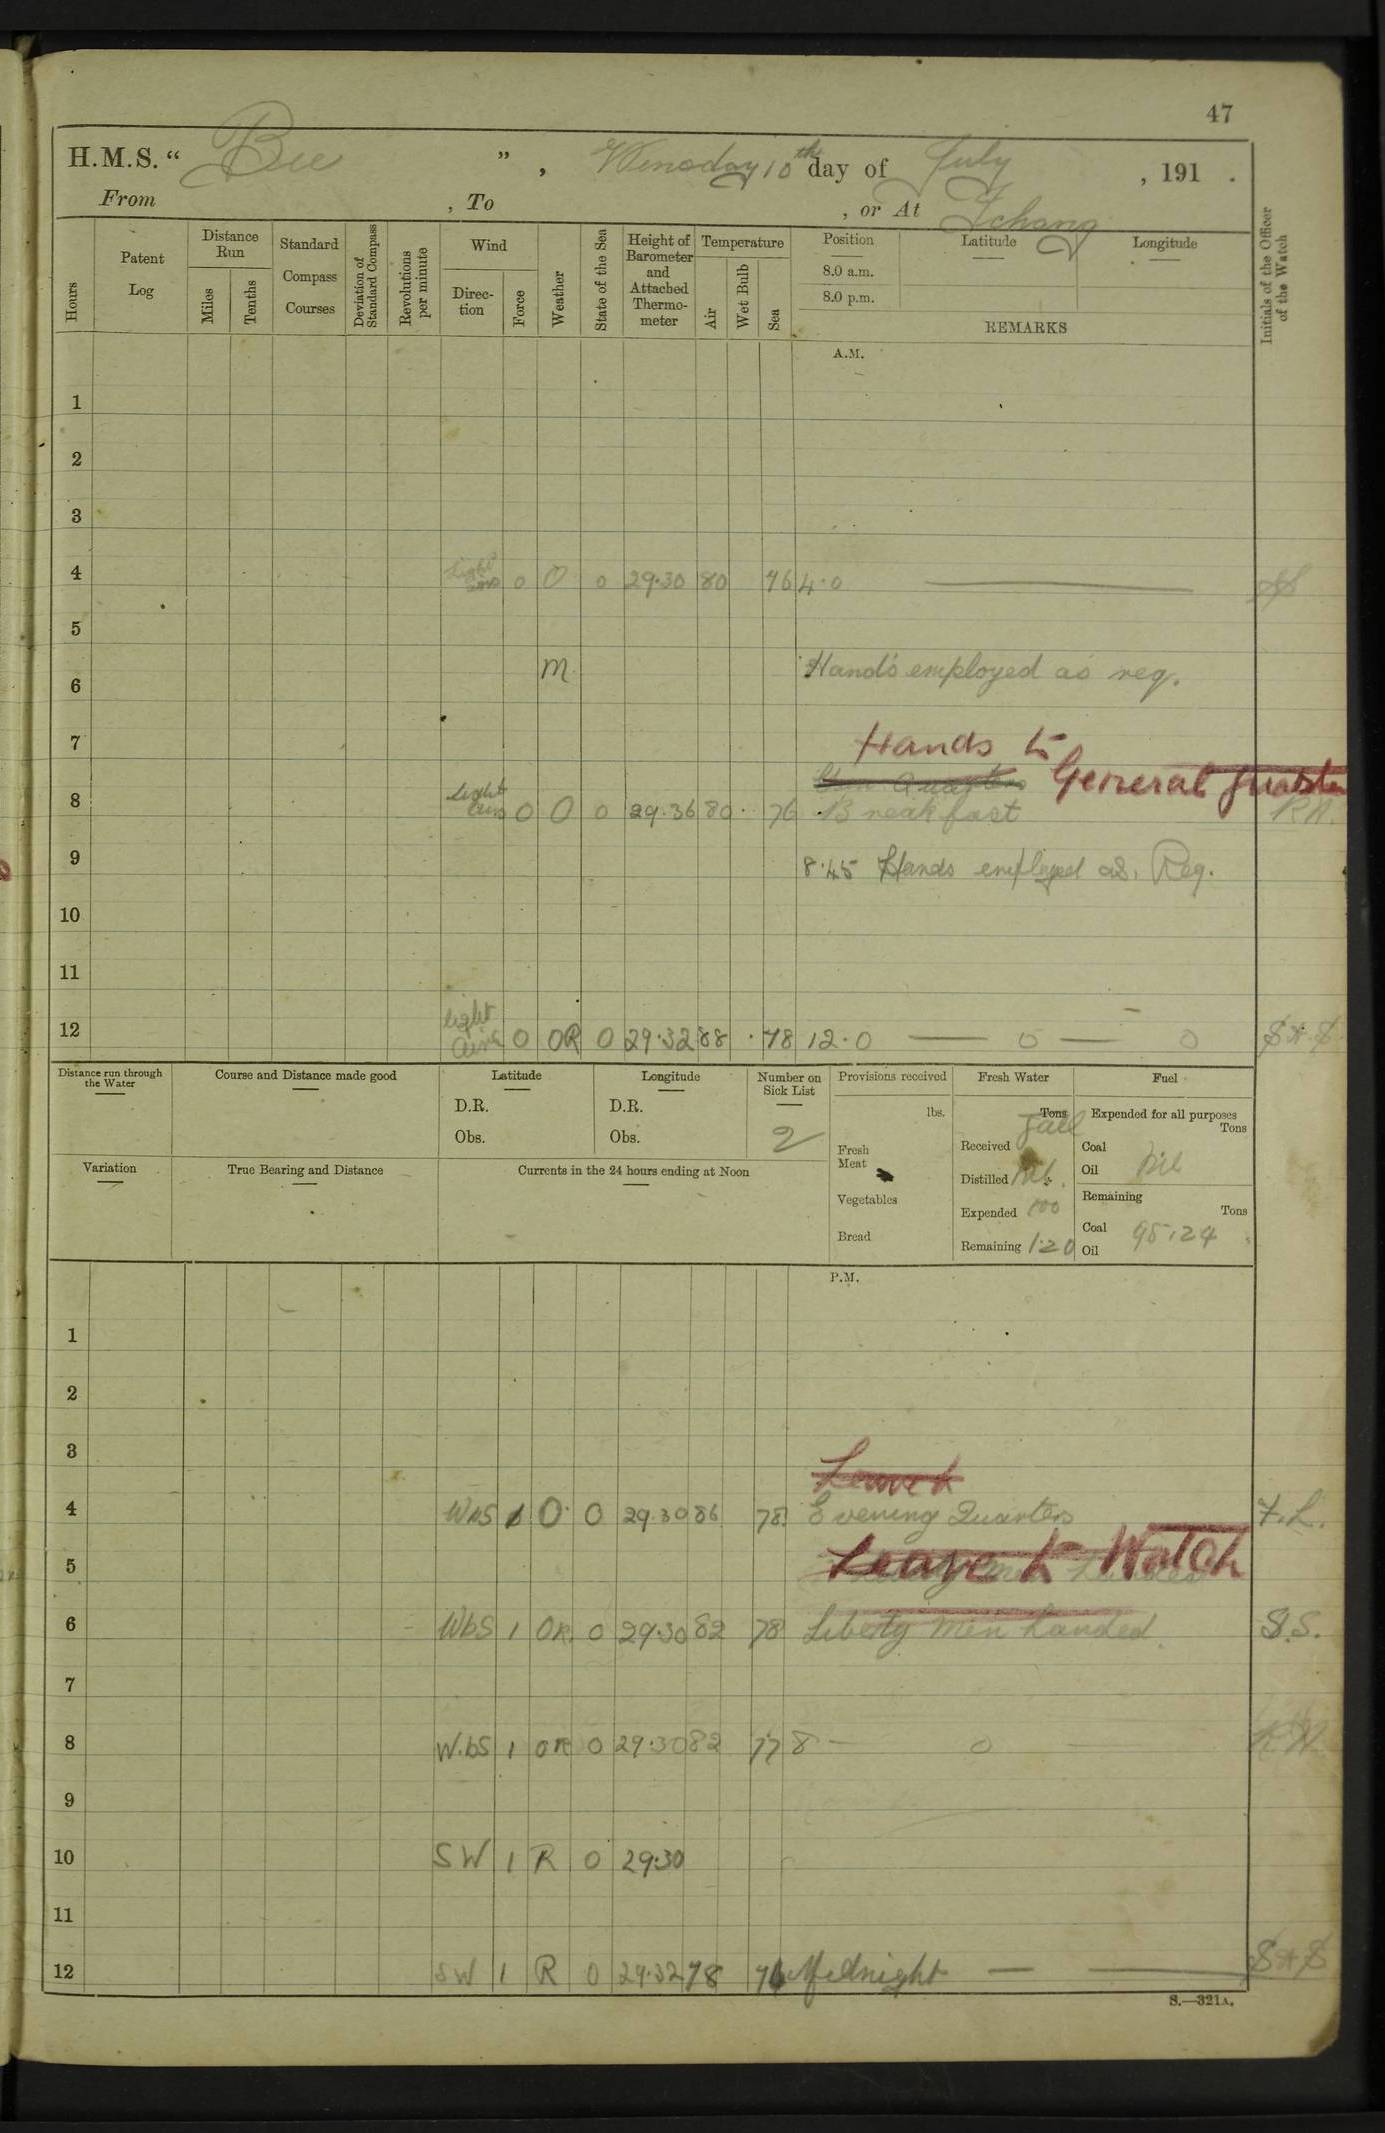 47
H.M.S. “ Bee ” , Wensday 10th day of July , 191 .
From , To , or At Ichang
Hours
Patent Log
Distance Run
Miles
Tenths
Standard Compass Courses
Deviation of Standard Compass
Revolutions per minute
Wind
Direction
Force
Weather
State of the Sea
Height of Barometer and Attached Thermometer
Temperature
Air
Wet Bulb
Sea
Position
Latitude
Longitude
8.0 a.m.
8.0 p.m.
REMARKS
Initials of the Officer of the Watch
A.M.
1
2
3
4 Light airs 0 O 0 29.30 80 76 4.0
5
m Hands employed as req.
6
7 Hands to
General Quarters
8 Light airs 0 O 0 29.36 80 76 Breakfast
9 8.45 Hands employed as Req.
10
11
12 light airs 0 OR 0 29.32 88 78 12.0 — 0 — 0
Distance run through the Water
Course and Distance made good
Latitude
D.R.
Obs.
Longitude
D.R.
Obs.
Number on Sick List
2
Provisions received
lbs.
Fresh Meat
Vegetables
Bread
Fresh Water
Tons
Received
Distilled Nil.
Expended 100
Remaining 120
Fuel
Expended for all purposes
Tons
Coal
Oil Nil
Remaining
Tons
Coal
Oil 95.24
Variation
True Bearing and Distance
Currents in the 24 hours ending at Noon
P.M.
1
2
3
Leave to
4 WbS 1 O 0 29.30 86 78 Evening Quarters F.L.
5 Leave to Watch
6 WbS 1 OR 0 29.30 82 78 Liberty men Landed. S.S.
7
8 W.bS 1 OR 0 29.30 82 77 8 — 0
9
10 SW 1 R 0 29.30
11
12 SW 1 R 0 29.32 78 76 Midnight
S.—321A.